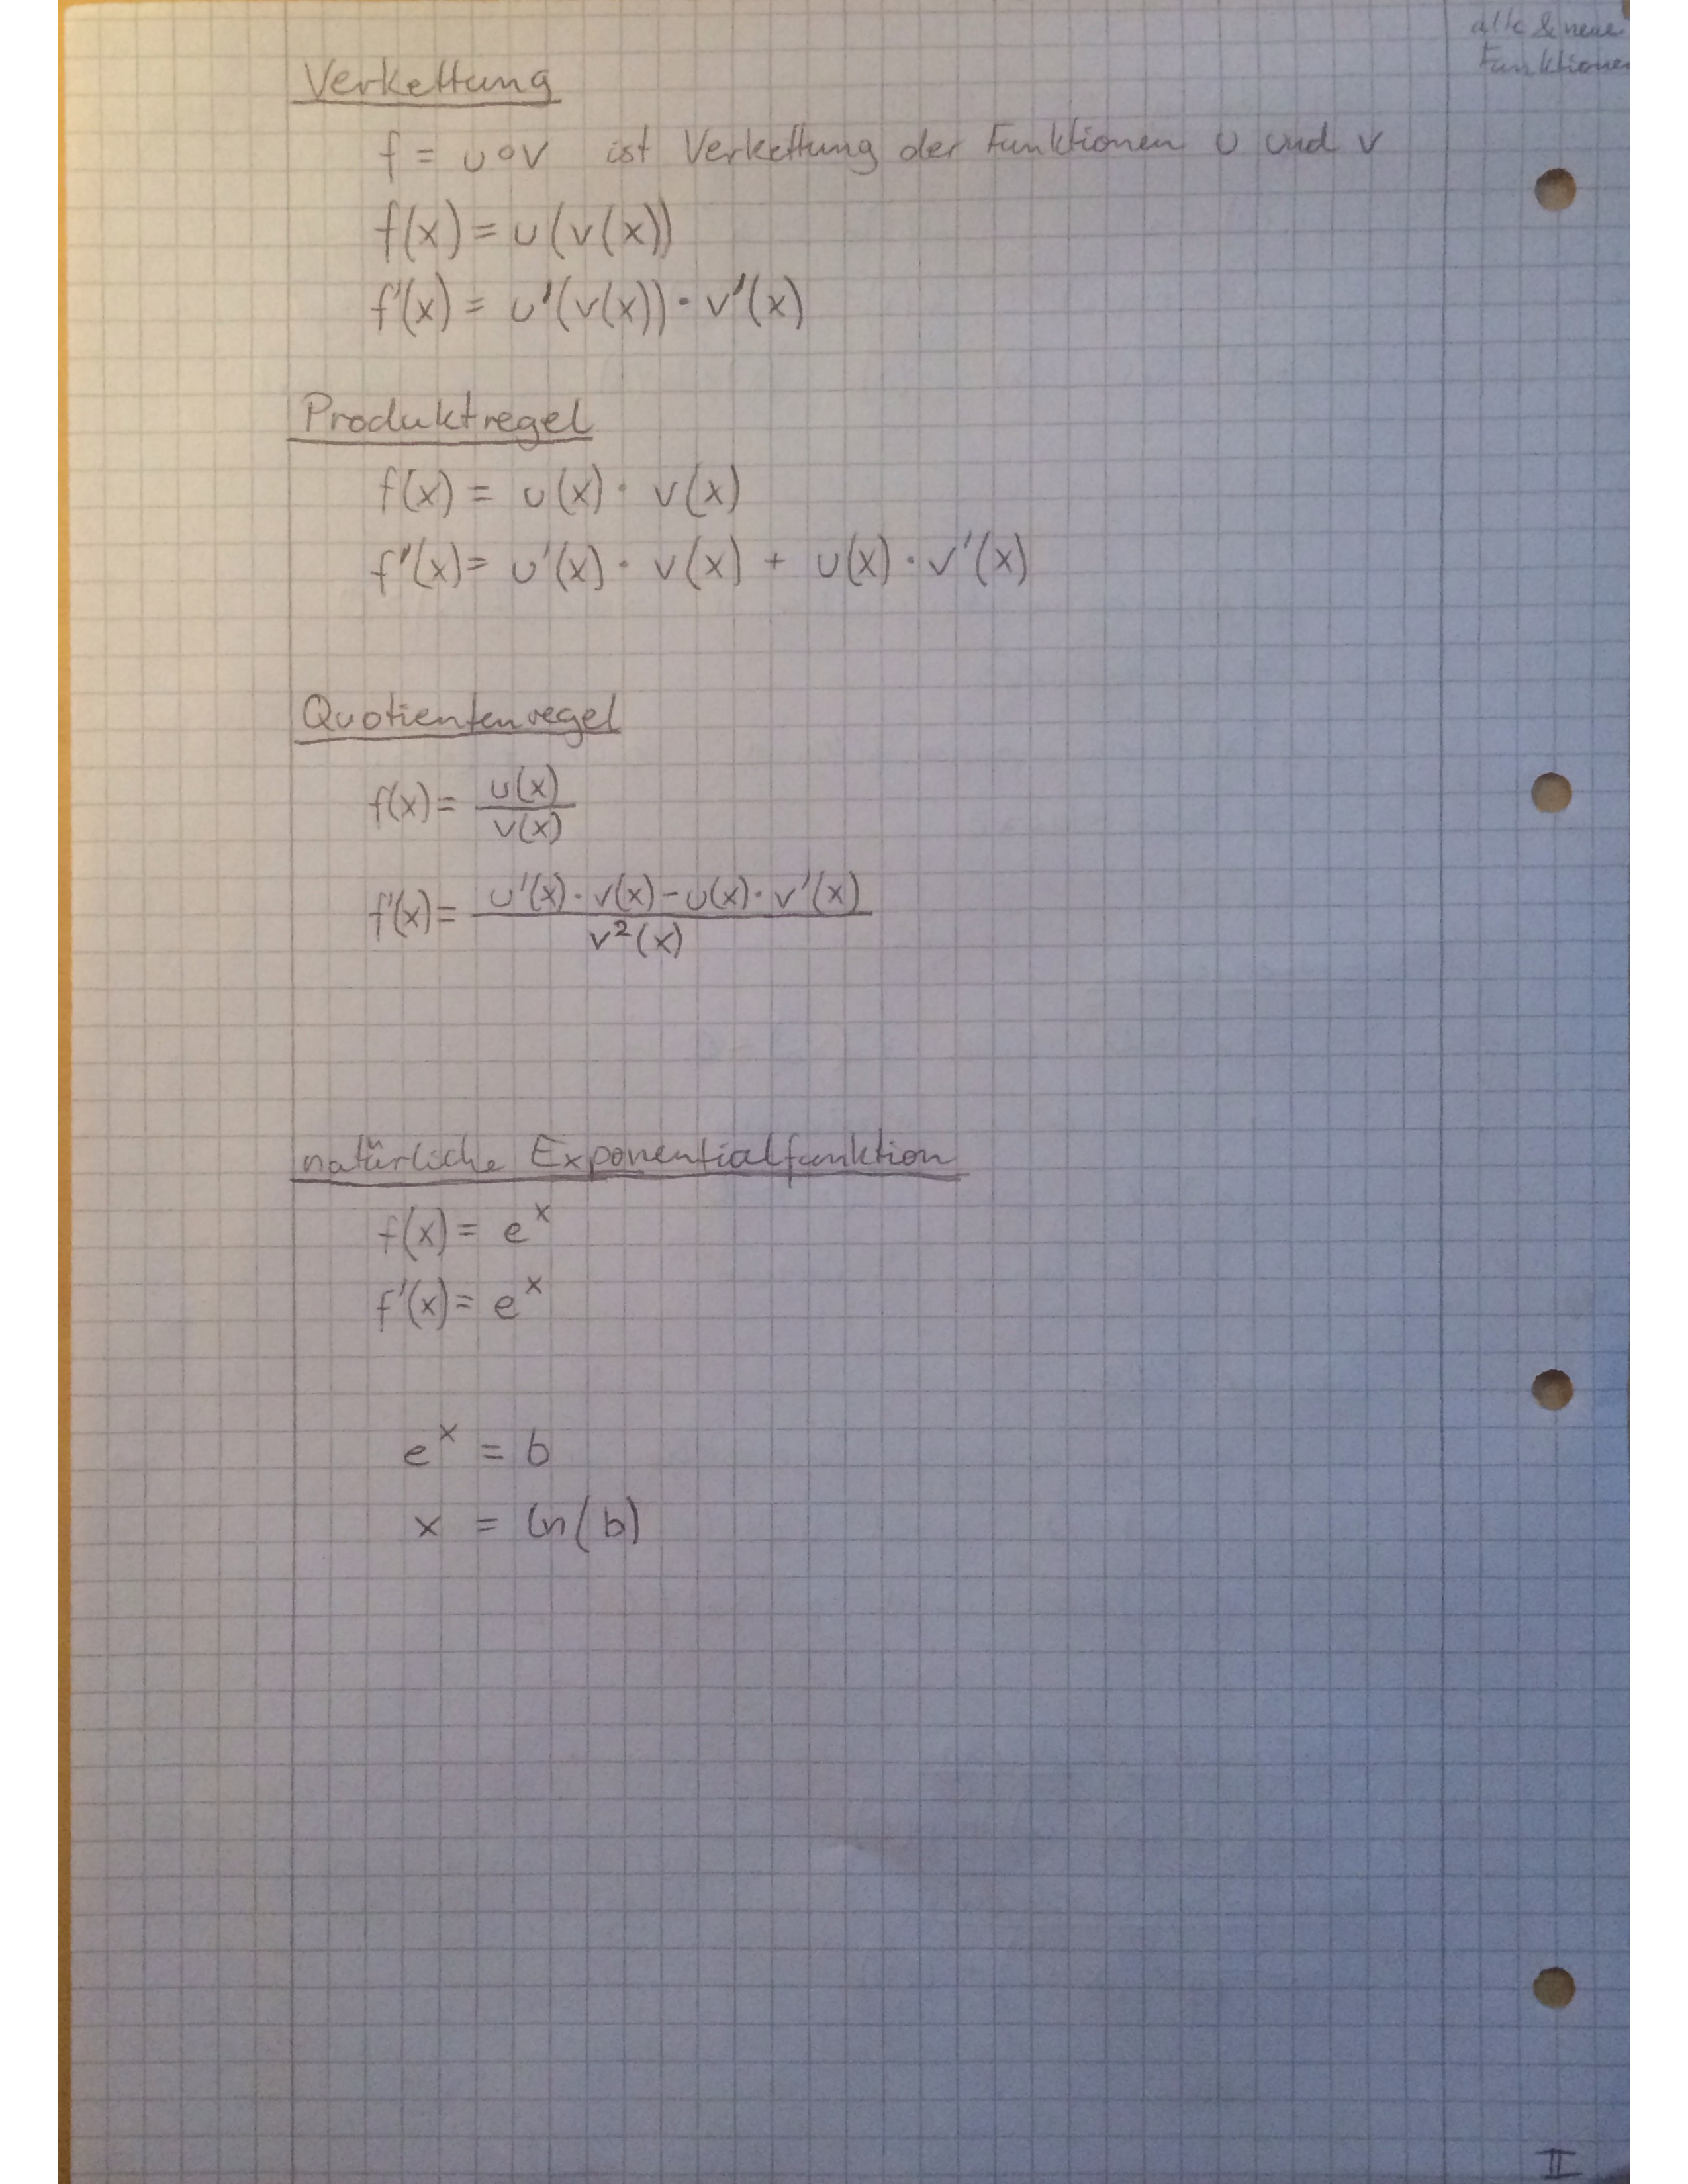 alte & neue
Funktionen
Verkettung
f = u∘v ist Verkettung der Funktionen u und v
f(x) = u(v(x))
f'(x) = u'(v(x)) · v'(x)
Produktregel
f(x) = u(x) · v(x)
f'(x) = u'(x) · v(x) + u(x) · v'(x)
Quotientenregel
f(x) = u(x) / v(x)
f'(x) = u'(x) · v(x) - u(x) · v'(x) / v²(x)
natürliche Exponentialfunktion
f(x) = e^x
f'(x) = e^x
e^x = b
x = ln(b)
II